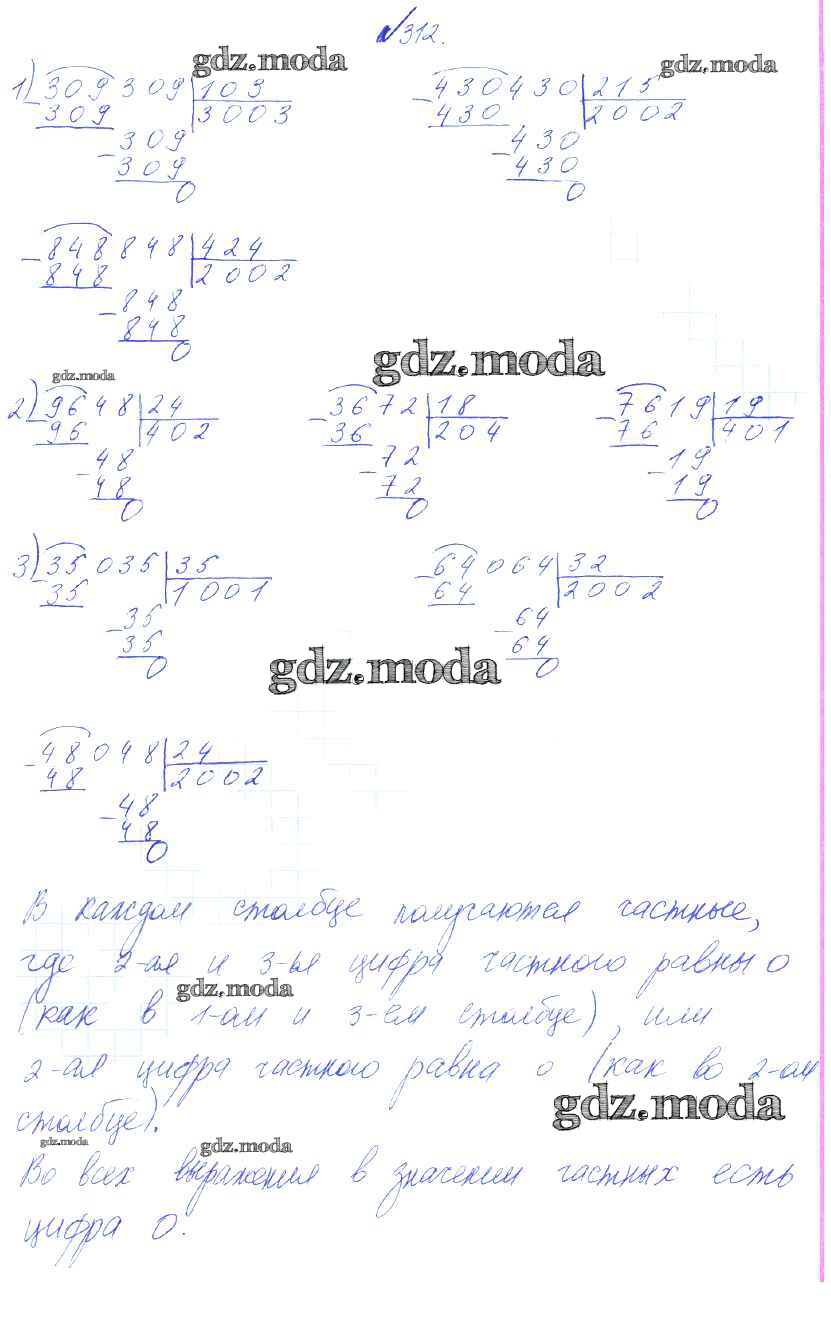 №312.
gdz.moda gdz.moda
1) 309309 103 430430 215
309 3003 430 2002
309 430
309 430
0 0
848848 424
848 2002
848
848
0
gdz.moda
gdz.moda
2) 9648 24 3672 18 7619 19
96 402 36 204 76 401
48 72 19
48 72 19
0 0 0
3) 35035 35 64064 32
35 1001 64 2002
35 64
35 64
0 0
gdz.moda
48048 24
48 2002
48
48
0
В каждом столбце получаются частные,
где 2-ая и 3-ья цифра частного равны 0
gdz.moda
(как в 1-ом и 3-ем столбце), или
2-ая цифра частного равна 0 (как во 2-ом
gdz.moda
столбце).
gdz.moda gdz.moda
Во всех выражения в значении частных есть
цифра 0.